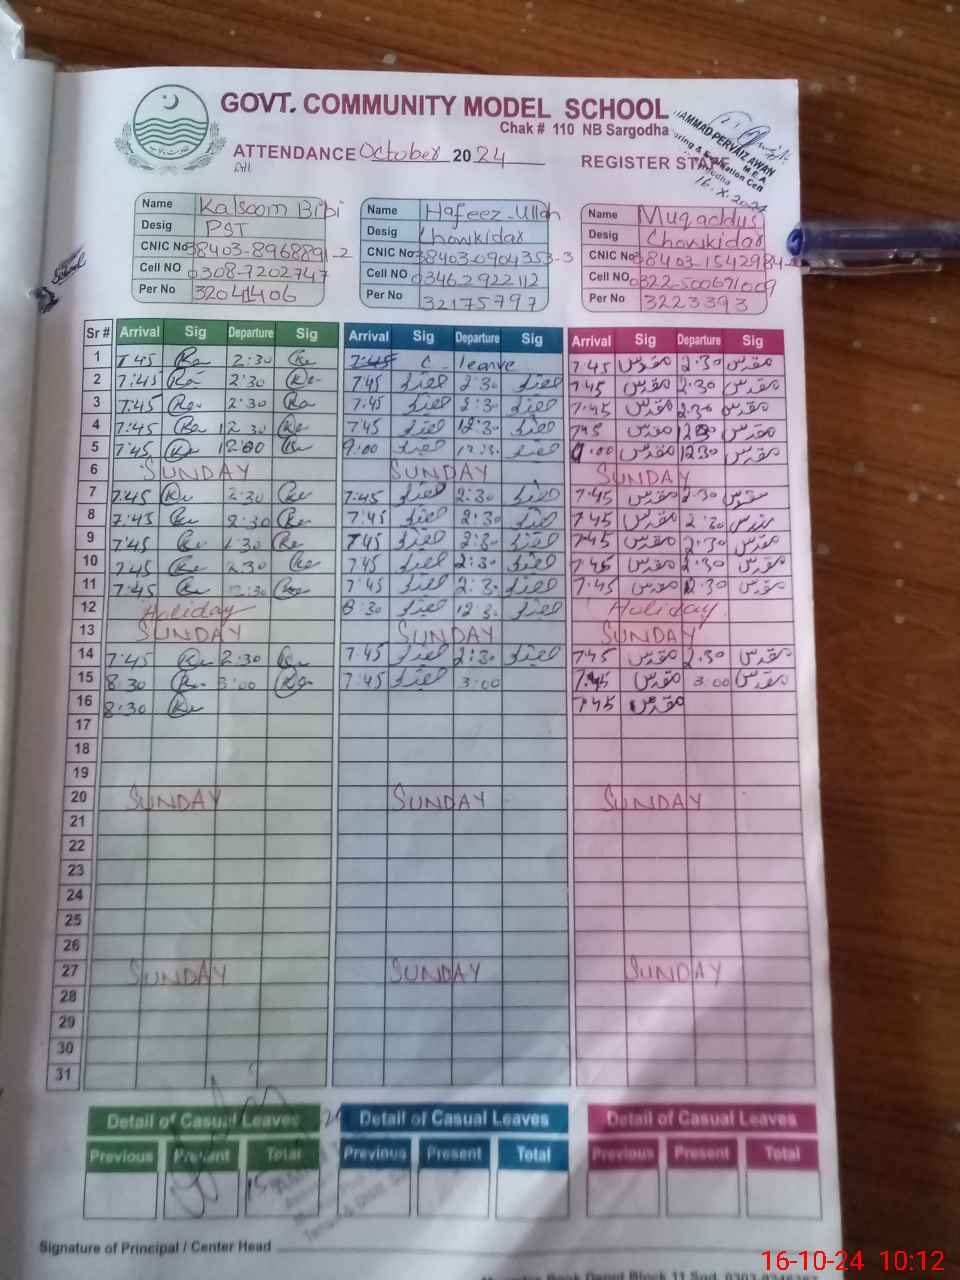 GOVT. COMMUNITY MODEL SCHOOL
Chak # 110 NB Sargodha
ATTENDANCE October 2024 REGISTER STAFF
MUHAMMAD PERVAIZ AWAN
M.E.A
16.X.2024
Name Kalsoom Bibi Name Hafeez-Ullah Name Muqaddus
Desig PST Desig Chowkidar Desig Chowkidar
CNIC No 38403-8968891-2 CNIC No 38403-0904353-3 CNIC No 38403-1542984-
Cell NO 0308-7202747 Cell NO 03462922112 Cell NO
Per No 32041406 Per No 32175797 Per No 3223393
Sr # Arrival Sig Departure Sig Arrival Sig Departure Sig Arrival Sig Departure Sig
1 7:45 2:30 7:45 C. leave 7:45 مقدس 2:30 مقدس
2 7:45 2:30 7:45 2:30 7:45 مقدس 2:30 مقدس
3 7:45 2:30 7:45 2:30 7:45 مقدس 2:30 مقدس
4 7:45 12:30 7:45 12:30 7:45 مقدس 12:30 مقدس
5 7:45 9:00 12:30 9:00 مقدس 12:30 مقدس
6 SUNDAY SUNDAY SUNDAY
7 7:45 2:30 7:45 2:30 7:45 مقدس 2:30 مقدس
8 7:45 2:30 7:45 2:30 7:45 مقدس 2:30 مقدس
9 7:45 2:30 7:45 2:30 7:45 مقدس 2:30 مقدس
10 7:45 2:30 7:45 2:30 7:45 مقدس 2:30 مقدس
11 7:45 12:30 7:45 2:30 7:45 مقدس 12:30 مقدس
12 Holiday 8:30 12:30 Holiday
13 SUNDAY SUNDAY SUNDAY
14 7:45 2:30 7:45 2:30 7:45 مقدس 2:30 مقدس
15 8:30 3:00 7:45 3:00 7:45 مقدس 3:00 مقدس
16 8:30 7:45 مقدس
17
18
19
20 SUNDAY SUNDAY SUNDAY
21
22
23
24
25
26
27 SUNDAY SUNDAY SUNDAY
28
29
30
31
Detail of Casual Leaves Detail of Casual Leaves Detail of Casual Leaves
Previous Present Total Previous Present Total Previous Present Total
Signature of Principal / Center Head
16-10-24 10:12